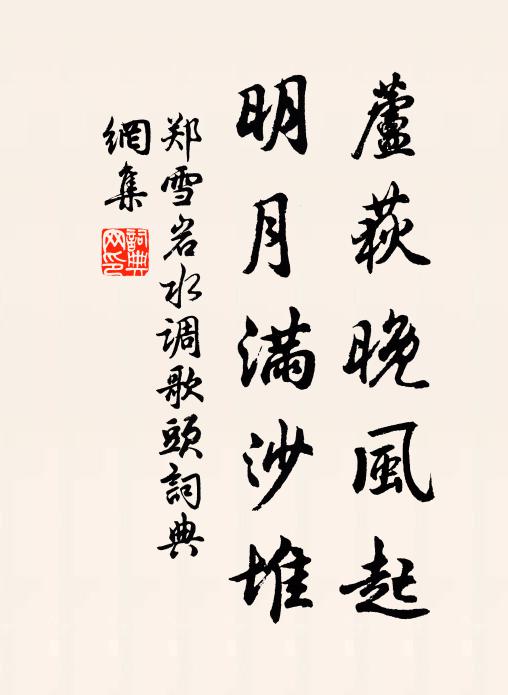 蘆荻晚風起
明月滿沙堆
郑雪岩水调歌頭詞典
網集
詞典
网印